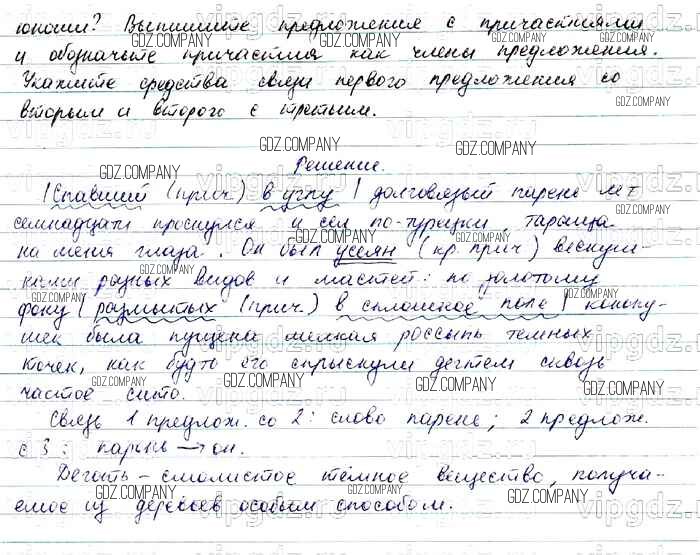 юноши? Выпишите предложения с причастиями
и обозначьте причастия как члены предложения.
Укажите средства связи первого предложения со
вторым и второго с третьим.
Решение.
|Спавший (прич.) в углу| долговязый парень лет
семнадцати проснулся и сел по-турецки, тараща
на меня глаза. Он был усеян (кр. прич) веснуш-
ками разных видов и мастей: по золотому
фону |размытых (прич.) в сплошное поле| конопу-
шек была пущена мелкая россыпь темных
точек, как будто его спрыснули дегтем сквозь
частое сито.
Связь 1 предлож. со 2: слово парень; 2 предлож.
с 3: парень → он.
Деготь – смолистое темное вещество, получа-
емое из деревьев особым способом.
GDZ.COMPANY
vipgdz.ru